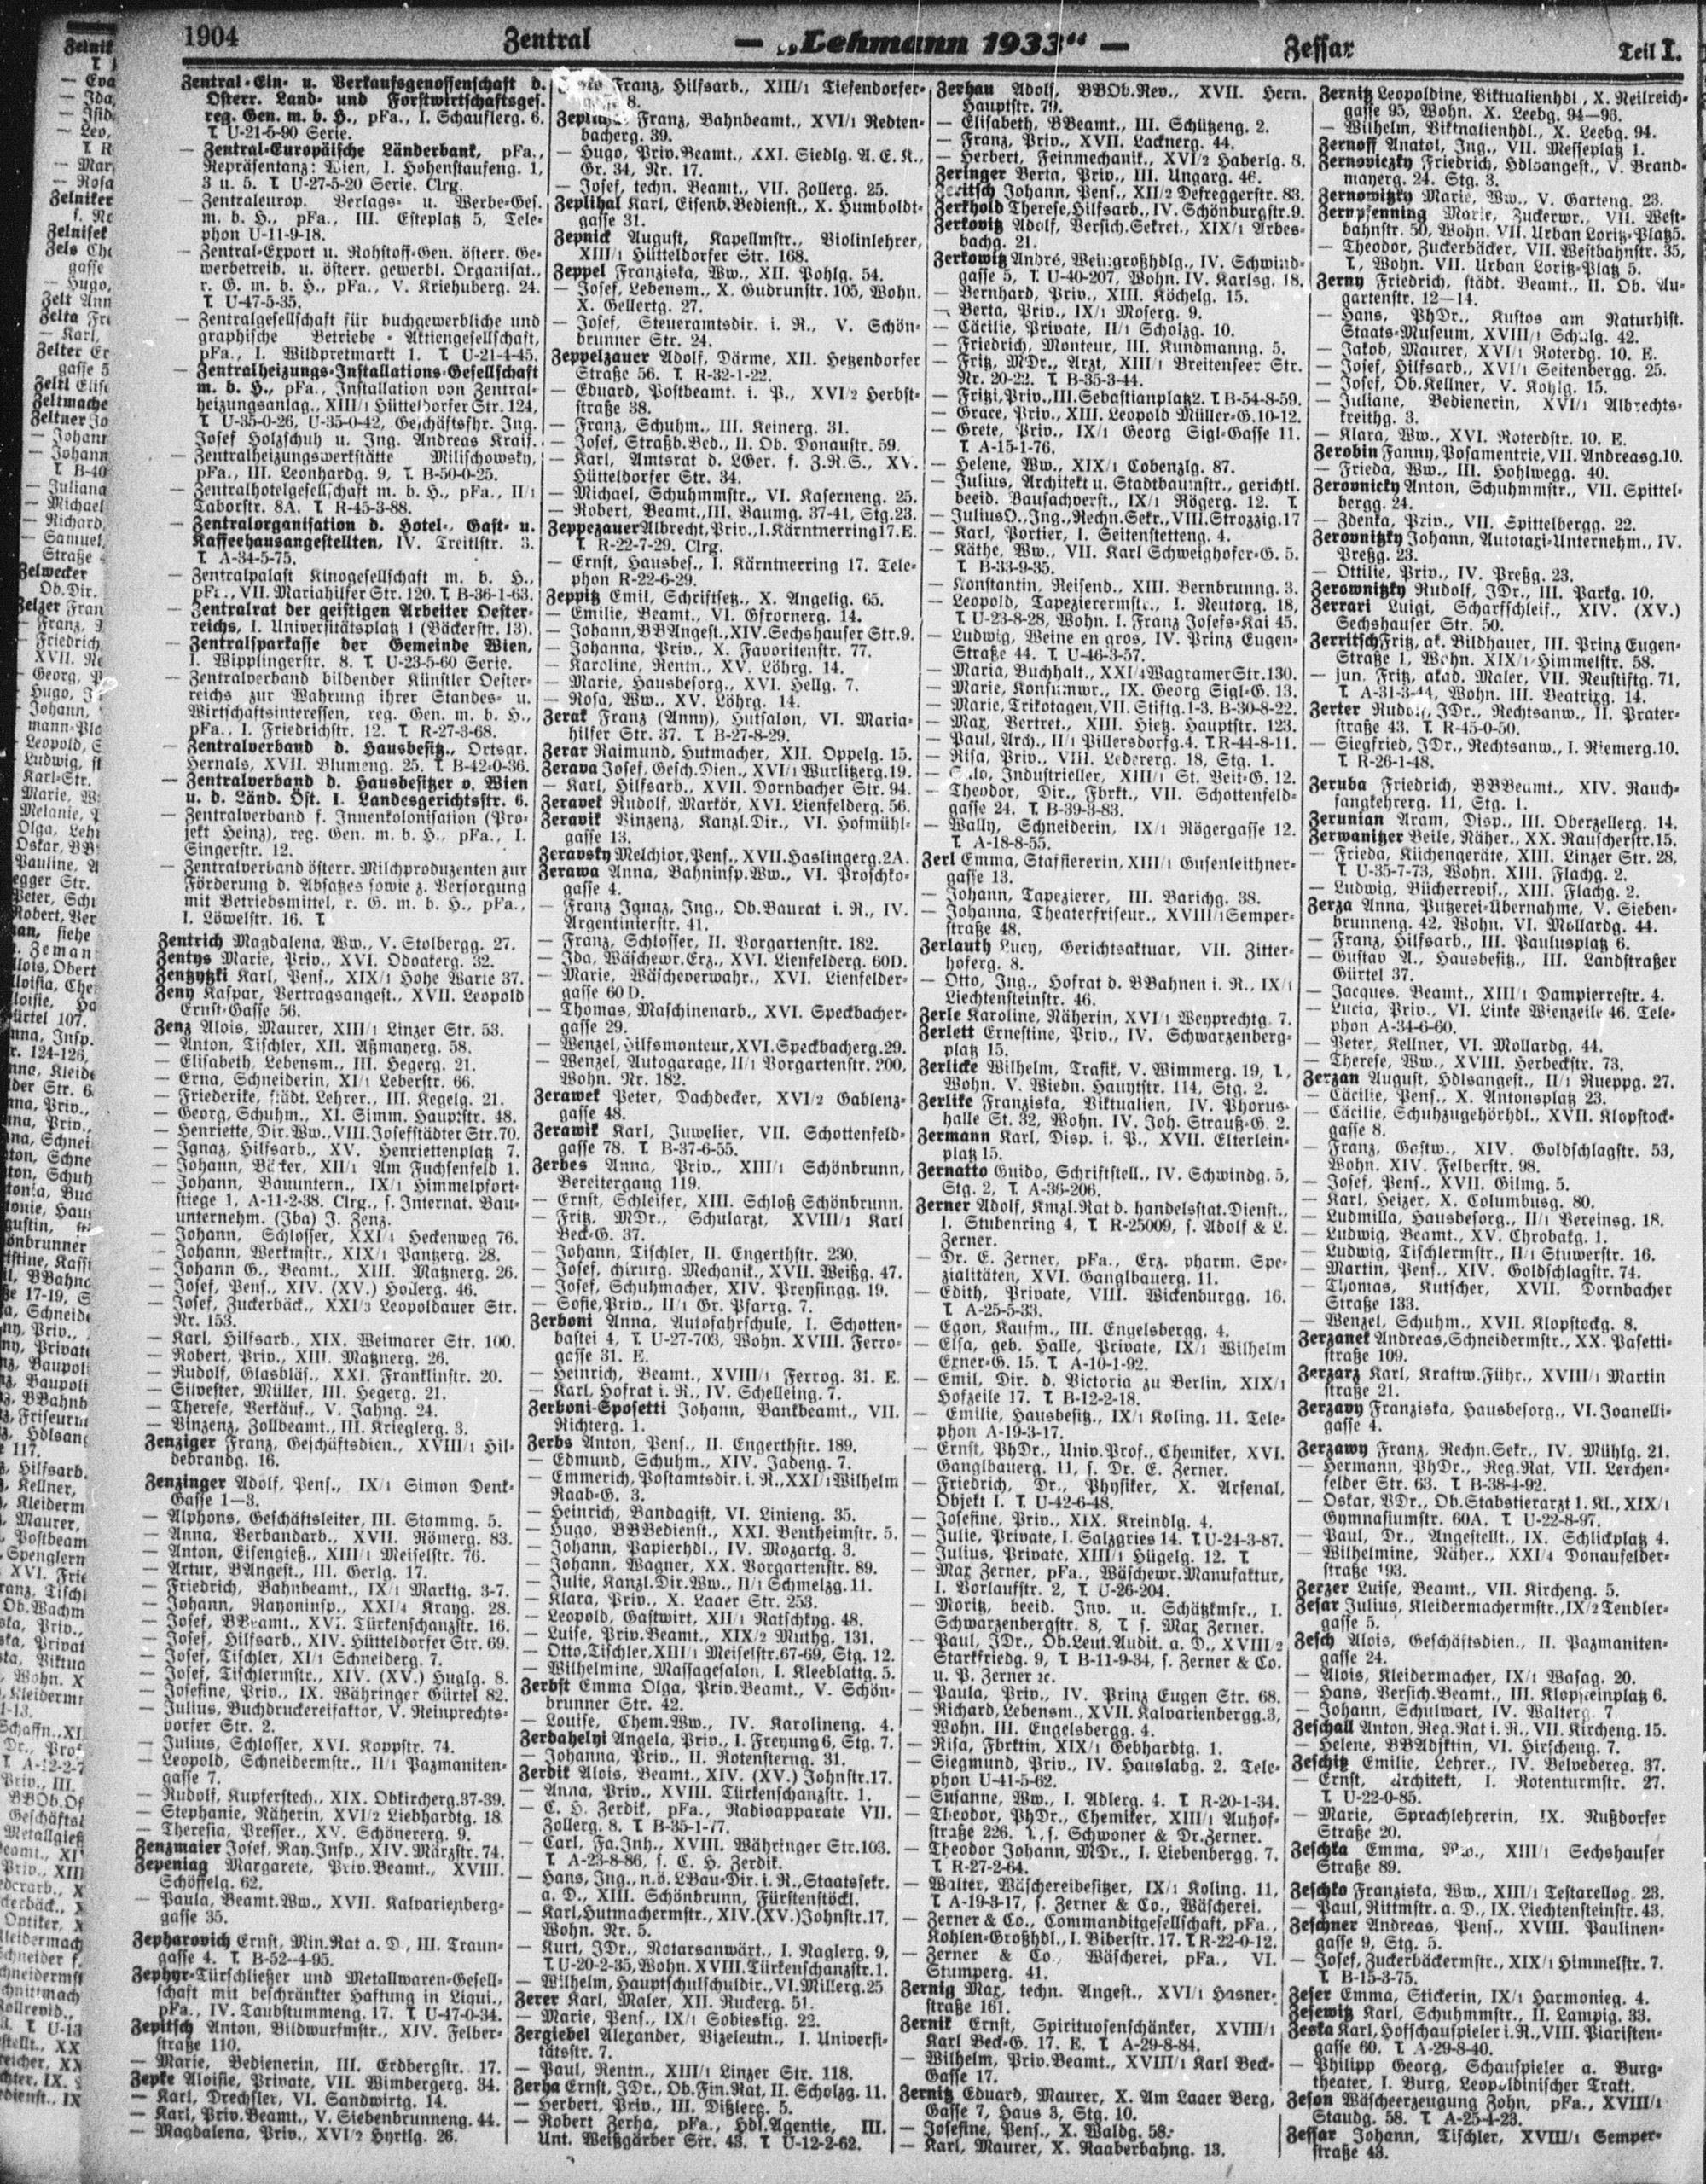 1904 Zentral — „Lehmann 1933“ — Zessar Teil I.
Zentral-Ein- u. Verkaufsgenossenschaft d.
Österr. Land- und Forstwirtschaftsges.
reg. Gen. m. b. H., pFa., I. Schauflerg. 6.
T. U-21-5-90 Serie.
— Zentral-Europäische Länderbank, pFa.,
Repräsentanz: Wien, I. Hohenstaufeng. 1,
3 u. 5. T. U-27-5-20 Serie. Clrg.
— Zentraleurop. Verlags- u. Werbe-Ges.
m. b. H., pFa., III. Esteplatz 5, Tele-
phon U-11-9-18.
— Zentral-Export u. Rohstoff-Gen. österr. Ge-
werbetreib. u. österr. gewerbl. Organisat.,
r. G. m. b. H., pFa., V. Kriehuberg. 24.
T. U-47-5-35.
— Zentralgesellschaft für buchgewerbliche und
graphische Betriebe - Aktiengesellschaft,
pFa., I. Wildpretmarkt 1. T. U-21-4-45.
— Zentralheizungs-Installations-Gesellschaft
m. b. H., pFa., Installation von Zentral-
heizungsanlag., XIII/1 Hütteldorfer Str. 124,
T. U-35-0-26, U-35-0-42, Geschäftsfhr. Ing.
Josef Holzschuh u. Ing. Andreas Kraif.
— Zentralheizungswerkstätte Milischowsky,
pFa., III. Leonhardg. 9, T. B-50-0-25.
— Zentralhotelgesellschaft m. b. H., pFa., II/1
Taborstr. 8A. T. R-45-3-88.
— Zentralorganisation d. Hotel-, Gast- u.
Kaffeehausangestellten, IV. Treitlstr. 3.
T. A-34-5-75.
— Zentralpalast Kinogesellschaft m. b. H.,
pFa., VII. Mariahilfer Str. 120. T. B-36-1-63.
— Zentralrat der geistigen Arbeiter Oester-
reichs, I. Universitätsplatz 1 (Bäckerstr. 13).
— Zentralsparkasse der Gemeinde Wien,
I. Wipplingerstr. 8. T. U-23-5-60 Serie.
— Zentralverband bildender Künstler Oester-
reichs zur Wahrung ihrer Standes- u.
Wirtschaftsinteressen, reg. Gen. m. b. H.,
pFa., I. Friedrichstr. 12. T. R-27-3-68.
— Zentralverband d. Hausbesitz., Ortsgr.
Hernals, XVII. Blumeng. 25. T. B-42-0-36.
— Zentralverband d. Hausbesitzer v. Wien
u. d. Länd. Öst. I. Landesgerichtsstr. 6.
— Zentralverband f. Innenkolonisation (Pro-
jekt Heinz), reg. Gen. m. b. H., pFa., I.
Singerstr. 12.
— Zentralverband österr. Milchproduzenten zur
Förderung d. Absatzes sowie z. Versorgung
mit Betriebsmittel, r. G. m. b. H., pFa.,
I. Löwelstr. 16. T.
Zentrich Magdalena, Ww., V. Stolbergg. 27.
Zentys Marie, Priv., XVI. Odoakerg. 32.
Zentzytzki Karl, Pens., XIX/1 Hohe Warte 37.
Zeny Kaspar, Vertragsangest., XVII. Leopold
Ernst-Gasse 56.
Zenz Alois, Maurer, XIII/1 Linzer Str. 53.
— Anton, Tischler, XII. Aßmayerg. 58.
— Elisabeth, Lebensm., III. Hegerg. 21.
— Erna, Schneiderin, XI/1 Leberstr. 66.
— Friederike, städt. Lehrer., III. Kegelg. 21.
— Georg, Schuhm., XI. Simm. Hauptstr. 48.
— Henriette, Dir.Ww., VIII. Josefstädter Str. 70.
— Ignaz, Hilfsarb., XV. Henriettenplatz 7.
— Johann, Bäcker, XII/1 Am Fuchsenfeld 1.
— Johann, Bauuntern., IX/1 Himmelpfort-
stiege 1, A-11-2-38. Clrg., s. Internat. Bau-
unternehm. (Iba) J. Zenz.
— Johann, Schlosser, XXI/4 Heckenweg 76.
— Johann, Werkmstr., XIX/1 Pantzerg. 28.
— Johann G., Beamt., XIII. Matznerg. 26.
— Josef, Pens., XIV. (XV.) Hollerg. 46.
— Josef, Zuckerbäck., XXI/3 Leopoldauer Str.
Nr. 153.
— Karl, Hilfsarb., XIX. Weimarer Str. 100.
— Robert, Priv., XIII. Matznerg. 26.
— Rudolf, Glasbläs., XXI. Franklinstr. 20.
— Silvester, Müller, III. Hegerg. 21.
— Therese, Verkäuf., V. Jahng. 24.
— Vinzenz, Zollbeamt., III. Krieglerg. 3.
Zenziger Franz, Geschäftsdien., XVIII/1 Hil-
debrandg. 16.
Zenzinger Adolf, Pens., IX/1 Simon Denk-
Gasse 1—3.
— Alphons, Geschäftsleiter, III. Stammg. 5.
— Anna, Verbandarb., XVII. Römerg. 83.
— Anton, Eisengieß., XIII/1 Meiselstr. 76.
— Artur, BAngest., III. Gerlg. 17.
— Friedrich, Bahnbeamt., IX/1 Marktg. 3-7.
— Johann, Rayoninsp., XXI/4 Krayg. 28.
— Josef, BBeamt., XVI. Türkenschanzstr. 16.
— Josef, Hilfsarb., XIV. Hütteldorfer Str. 69.
— Josef, Tischler, XI/1 Schneiderg. 7.
— Josef, Tischlermstr., XIV. (XV.) Huglg. 8.
— Josefine, Priv., IX. Währinger Gürtel 82.
— Julius, Buchdruckereifaktor, V. Reinprechts-
dorfer Str. 2.
— Julius, Schlosser, XVI. Koppstr. 74.
— Leopold, Schneidermstr., II/1 Pazmaniten-
gasse 7.
— Rudolf, Kupferstech., XIX. Obkircherg. 37-39.
— Stephanie, Näherin, XVI/2 Liebhardtg. 18.
— Theresia, Presser., XV. Schönererg. 9.
Zenzmaier Josef, Ray.Insp., XIV. Märzstr. 74.
Zepeniag Margarete, Priv.Beamt., XVIII.
Schöffelg. 62.
— Paula, Beamt.Ww., XVII. Kalvarienberg-
gasse 35.
Zepharovich Ernst, Min.Rat a. D., III. Traun-
gasse 4. T. B-52-4-95.
Zephyr-Türschließer und Metallwaren-Gesell-
schaft mit beschränkter Haftung in Liqui.,
pFa., IV. Taubstummeng. 17. T. U-47-0-34.
Zepitsch Anton, Bildwurfmstr., XIV. Felber-
straße 110.
— Marie, Bedienerin, III. Erdbergstr. 17.
Zepke Aloisie, Private, VII. Wimbergerg. 34.
— Karl, Drechsler, VI. Sandwirtg. 14.
— Karl, Priv.Beamt., V. Siebenbrunneng. 44.
— Magdalena, Priv., XVI/2 Hyrtlg. 26.
Franz, Hilfsarb., XIII/1 Tiefendorfer-
8.
Franz, Bahnbeamt., XVI/1 Redten-
bacherg. 39.
— Hugo, Priv.Beamt., XXI. Siedlg. A. E. K.,
Gr. 34, Nr. 17.
— Josef, techn. Beamt., VII. Zollerg. 25.
Zeplihal Karl, Eisenb.Bedienst., X. Humboldt-
gasse 31.
Zepnick August, Kapellmstr., Violinlehrer,
XIII/1 Hütteldorfer Str. 168.
Zeppel Franziska, Ww., XII. Pohlg. 54.
— Josef, Lebensm., X. Gudrunstr. 105, Wohn.
X. Gellertg. 27.
— Josef, Steueramtsdir. i. R., V. Schön-
brunner Str. 24.
Zeppelzauer Adolf, Därme, XII. Hetzendorfer
Straße 56. T. R-32-1-22.
— Eduard, Postbeamt. i. P., XVI/2 Herbst-
straße 38.
— Franz, Schuhm., III. Keinerg. 31.
— Josef, Straßb.Bed., II. Ob. Donaustr. 59.
— Karl, Amtsrat d. LGer. f. Z.R.S., XV.
Hütteldorfer Str. 34.
— Michael, Schuhmmstr., VI. Kaserneng. 25.
— Robert, Beamt., III. Baumg. 37-41, Stg. 23.
Zeppezauer Albrecht, Priv., I. Kärntnerring 17. E.
T. R-22-7-29. Clrg.
— Ernst, Hausbes., I. Kärntnerring 17. Tele-
phon R-22-6-29.
Zeppitz Emil, Schriftsetz., X. Angelig. 65.
— Emilie, Beamt., VI. Gfrornerg. 14.
— Johann, BBAngest., XIV. Sechshauser Str. 9.
— Johanna, Priv., X. Favoritenstr. 77.
— Karoline, Rentn., XV. Löhrg. 14.
— Marie, Hausbesorg., XVI. Hellg. 7.
— Rosa, Ww., XV. Löhrg. 14.
Zerak Franz (Anny), Hutsalon, VI. Maria-
hilfer Str. 37. T. B-27-8-29.
Zerar Raimund, Hutmacher, XII. Oppelg. 15.
Zerava Josef, Gesch.Dien., XVI/1 Wurlitzerg. 19.
— Karl, Hilfsarb., XVII. Dornbacher Str. 94.
Zeravek Rudolf, Markör, XVI. Lienfelderg. 56.
Zeravik Vinzenz, Kanzl.Dir., VI. Hofmühl-
gasse 13.
Zeravsky Melchior, Pens., XVII. Haslingerg. 2A.
Zerawa Anna, Bahninsp.Ww., VI. Proschko-
gasse 4.
— Franz Ignaz, Ing., Ob.Baurat i. R., IV.
Argentinierstr. 41.
— Franz, Schlosser, II. Vorgartenstr. 182.
— Ida, Wäschewr.Erz., XVI. Lienfelderg. 60D.
— Marie, Wäscheverwahr., XVI. Lienfelder-
gasse 60 D.
— Thomas, Maschinenarb., XVI. Speckbacher-
gasse 29.
— Wenzel, Hilfsmonteur, XVI. Speckbacherg. 29.
— Wenzel, Autogarage, II/1 Vorgartenstr. 200,
Wohn. Nr. 182.
Zerawek Peter, Dachdecker, XVI/2 Gablenz-
gasse 48.
Zerawik Karl, Juwelier, VII. Schottenfeld-
gasse 78. T. B-37-6-55.
Zerbes Anna, Priv., XIII/1 Schönbrunn,
Bereitergang 119.
— Ernst, Schleifer, XIII. Schloß Schönbrunn.
— Fritz, MDr., Schularzt, XVIII/1 Karl
Beck-G. 37.
— Johann, Tischler, II. Engerthstr. 230.
— Josef, chirurg. Mechanik., XVII. Weißg. 47.
— Josef, Schuhmacher, XIV. Preysingg. 19.
— Sofie, Priv., II/1 Gr. Pfarrg. 7.
Zerboni Anna, Autofahrschule, I. Schotten-
bastei 4, T. U-27-703, Wohn. XVIII. Ferro-
gasse 31. E.
— Heinrich, Beamt., XVIII/1 Ferrog. 31. E.
— Karl, Hofrat i. R., IV. Schelleing. 7.
Zerboni-Sposetti Johann, Bankbeamt., VII.
Richterg. 1.
Zerbs Anton, Pens., II. Engerthstr. 189.
— Edmund, Schuhm., XIV. Jadeng. 7.
— Emmerich, Postamtsdir. i. R., XXI/1 Wilhelm
Raab-G. 3.
— Heinrich, Bandagist, VI. Linieng. 35.
— Hugo, BBBedienst., XXI. Bentheimstr. 5.
— Johann, Papierhdl., IV. Mozartg. 3.
— Johann, Wagner, XX. Vorgartenstr. 89.
— Julie, Kanzl.Dir.Ww., II/1 Schmelzg. 11.
— Klara, Priv., X. Laaer Str. 253.
— Leopold, Gastwirt, XII/1 Ratschkyg. 48.
— Luise, Priv.Beamt., XIX/2 Muthg. 131.
— Otto, Tischler, XIII/1 Meiselstr. 67-69, Stg. 12.
— Wilhelmine, Massagesalon, I. Kleeblattg. 5.
Zerbst Emma Olga, Priv.Beamt., V. Schön-
brunner Str. 42.
— Louise, Chem.Ww., IV. Karolineng. 4.
Zerdahelyi Angela, Priv., I. Freyung 6, Stg. 7.
— Johanna, Priv., II. Rotensterng. 31.
Zerdik Alois, Beamt., XIV. (XV.) Johnstr. 17.
— Anna, Priv., XVIII. Türkenschanzstr. 1.
— C. H. Zerdik, pFa., Radioapparate VII.
Zollerg. 8. T. B-35-1-77.
— Carl, Fa.Inh., XVIII. Währinger Str. 103.
T. A-23-8-86, s. C. H. Zerdik.
— Hans, Ing., n.ö. LBau-Dir. i. R., Staatssekr.
a. D., XIII. Schönbrunn, Fürstenstöckl.
— Karl, Hutmachermstr., XIV. (XV.) Johnstr. 17,
Wohn. Nr. 5.
— Kurt, JDr., Notarsanwärt., I. Naglerg. 9,
T. U-20-2-35, Wohn. XVIII. Türkenschanzstr. 1.
— Wilhelm, Hauptschulschuldir., VI. Millerg. 25
Zerer Karl, Maler, XII. Ruckerg. 51.
— Marie, Pens., IX/1 Sobieskig. 22.
Zergiebel Alexander, Vizeleutn., I. Universi-
tätsstr. 7.
— Paul, Rentn., XIII/1 Linzer Str. 118.
Zerha Ernst, JDr., Ob.Fin.Rat, II. Scholzg. 11.
— Herbert, Priv., III. Dißlerg. 5.
— Robert Zerha, pFa., Hdl.Agentie, III.
Unt. Weißgärber Str. 43. T. U-12-2-62.
Zerhau Adolf, BBOb.Rev., XVII. Hern.
Hauptstr. 79.
— Elisabeth, BBeamt., III. Schützeng. 2.
— Franz, Priv., XVII. Lacknerg. 44.
— Herbert, Feinmechanik., XVI/2 Haberlg. 8.
Zeringer Berta, Priv., III. Ungarg. 46.
Zeritsch Johann, Pens., XII/2 Defreggerstr. 83.
Zerkhold Therese, Hilfsarb., IV. Schönburgstr. 9.
Zerkovitz Adolf, Versich.Sekret., XIX/1 Arbes-
bachg. 21.
Zerkowitz André, Weingroßhdlg., IV. Schwind-
gasse 5, T. U-40-207, Wohn. IV. Karlsg. 18.
— Bernhard, Priv., XIII. Köchelg. 15.
— Berta, Priv., IX/1 Moserg. 9.
— Cäcilie, Private, II/1 Scholzg. 10.
— Friedrich, Monteur, III. Kundmanng. 5.
— Fritz, MDr., Arzt, XIII/1 Breitenseer Str.
Nr. 20-22. T. B-35-3-44.
— Fritzi, Priv., III. Sebastianplatz 2. T. B-54-8-59.
— Grace, Priv., XIII. Leopold Müller-G. 10-12.
— Grete, Priv., IX/1 Georg Sigl-Gasse 11.
T. A-15-1-76.
— Helene, Ww., XIX/1 Cobenzlg. 87.
— Julius, Architekt u. Stadtbaumstr., gerichtl.
beeid. Bausachverst., IX/1 Rögerg. 12. T.
— Julius O., Ing., Rechn.Sekr., VIII. Strozzig. 17
— Karl, Portier, I. Seitenstetteng. 4.
— Käthe, Ww., VII. Karl Schweighofer-G. 5.
T. B-33-9-35.
— Konstantin, Reisend., XIII. Bernbrunng. 3.
— Leopold, Tapezierermstr., I. Neutorg. 18,
T. U-23-8-28, Wohn. I. Franz Josefs-Kai 45.
— Ludwig, Weine en gros, IV. Prinz Eugen-
Straße 44. T. U-46-3-57.
— Maria, Buchhalt., XXI/4 Wagramer Str. 130.
— Marie, Konsumwr., IX. Georg Sigl-G. 13.
— Marie, Trikotagen, VII. Stiftg. 1-3. B-30-8-22.
— Max, Vertret., XIII. Hietz. Hauptstr. 123.
— Paul, Arch., II/1 Pillersdorfg. 4. T. R-44-8-11.
— Risa, Priv., VIII. Ledererg. 18, Stg. 1.
— Industrieller, XIII/1 St. Veit-G. 12.
— Theodor, Dir., Fbrkt., VII. Schottenfeld-
gasse 24. T. B-39-3-83.
— Wally, Schneiderin, IX/1 Rögergasse 12.
T. A-18-8-55.
Zerl Emma, Staffiererin, XIII/1 Gusenleithner-
gasse 13.
— Johann, Tapezierer, III. Barichg. 38.
— Johanna, Theaterfriseur., XVIII/1 Semper-
straße 48.
Zerlauth Lucy, Gerichtsaktuar, VII. Zitter-
hoferg. 8.
— Otto, Ing., Hofrat d. BBahnen i. R., IX/1
Liechtensteinstr. 46.
Zerle Karoline, Näherin, XVI/1 Weyprechtg. 7.
Zerlett Ernestine, Priv., IV. Schwarzenberg-
platz 15.
Zerlicke Wilhelm, Trafik, V. Wimmerg. 19, T.,
Wohn. V. Wiedn. Hauptstr. 114, Stg. 2.
Zerlike Franziska, Viktualien, IV. Phorus-
halle St. 32, Wohn. IV. Joh. Strauß-G. 2.
Zermann Karl, Disp. i. P., XVII. Elterlein-
platz 15.
Zernatto Guido, Schriftstell., IV. Schwindg. 5,
Stg. 2, T. A-36-206.
Zerner Adolf, Kmzl.Rat d. handelsstat. Dienst.,
I. Stubenring 4, T. R-25009, s. Adolf & L.
Zerner.
— Dr. E. Zerner, pFa., Erz. pharm. Spe-
zialitäten, XVI. Ganglbauerg. 11.
— Edith, Private, VIII. Wickenburgg. 16.
T. A-25-5-33.
— Egon, Kaufm., III. Engelsbergg. 4.
— Elsa, geb. Halle, Private, IX/1 Wilhelm
Exner-G. 15. T. A-10-1-92.
— Emil, Dir. d. Victoria zu Berlin, XIX/1
Hofzeile 17. T. B-12-2-18.
— Emilie, Hausbesitz., IX/1 Koling. 11. Tele-
phon A-19-3-17.
— Ernst, PhDr., Univ.Prof., Chemiker, XVI.
Ganglbauerg. 11, s. Dr. E. Zerner.
— Friedrich, Dr., Physiker, X. Arsenal,
Objekt I. T. U-42-6-48.
— Josefine, Priv., XIX. Kreindlg. 4.
— Julie, Private, I. Salzgries 14. T. U-24-3-87.
— Julius, Private, XIII/1 Hügelg. 12. T.
— Max Zerner, pFa., Wäschewr.Manufaktur,
I. Vorlaufstr. 2, T. U-26-204.
— Moritz, beeid. Inv. u. Schätzkmsr., I.
Schwarzenbergstr. 8, T. s. Max Zerner.
— Paul, JDr., Ob.Leut.Audit. a. D., XVIII/2
Starkfriedg. 9, T. B-11-9-34, s. Zerner & Co.
u. P. Zerner ꝛc.
— Paula, Priv., IV. Prinz Eugen Str. 68.
— Richard, Lebensm., XVII. Kalvarienbergg. 3,
Wohn. III. Engelsbergg. 4.
— Risa, Fbrktin, XIX/1 Gebhardtg. 1.
— Siegmund, Priv., IV. Hauslabg. 2. Tele-
phon U-41-5-62.
— Susanne, Ww., I. Adlerg. 4. T. R-20-1-34.
— Theodor, PhDr., Chemiker, XIII/1 Auhof-
straße 226. T., s. Schwoner & Dr. Zerner.
— Theodor Johann, MDr., I. Liebenbergg. 7.
T. R-27-2-64.
— Walter, Wäschereibesitzer, IX/1 Koling. 11,
T. A-19-3-17, s. Zerner & Co., Wäscherei.
— Zerner & Co., Commanditgesellschaft, pFa.,
Kohlen-Großhdl., I. Biberstr. 17. T. R-22-0-12.
— Zerner & Co., Wäscherei, pFa., VI.
Stumperg. 41.
Zernig Max, techn. Angest., XVI/1 Hasner-
straße 161.
Zernik Ernst, Spirituosenschänker, XVIII/1
Karl Beck-G. 17. E. T. A-29-8-84.
— Wilhelm, Priv.Beamt., XVIII/1 Karl Beck-
Gasse 17.
Zernitz Eduard, Maurer, X. Am Laaer Berg,
Gasse 7, Haus 3, Stg. 10.
— Josefine, Pens., X. Waldg. 58.
— Karl, Maurer, X. Raaberbahng. 13.
Zernitz Leopoldine, Viktualienhdl., X. Neilreich-
gasse 95, Wohn. X. Leebg. 94—96.
— Wilhelm, Viktualienhdl., X. Leebg. 94.
Zernoff Anatol, Ing., VII. Messeplatz 1.
Zernoviczky Friedrich, Hdlsangest., V. Brand-
mayerg. 24. Stg. 3.
Zernowitzky Marie, Ww., V. Garteng. 23.
Zernpfenning Marie, Zuckerwr., VII. West-
bahnstr. 50, Wohn. VII. Urban Loritz-Platz 5.
— Theodor, Zuckerbäcker, VII. Westbahnstr. 35,
T., Wohn. VII. Urban Loritz-Platz 5.
Zerny Friedrich, städt. Beamt., II. Ob. Au-
gartenstr. 12—14.
— Hans, PhDr., Kustos am Naturhist.
Staats-Museum, XVIII/1 Schulg. 42.
— Jakob, Maurer, XVI/1 Roterdg. 10. E.
— Josef, Hilfsarb., XVI/1 Seitenbergg. 25.
— Josef, Ob.Kellner, V. Kohlg. 15.
— Juliane, Bedienerin, XVI/1 Albrechts-
kreithg. 3.
— Klara, Ww., XVI. Roterdstr. 10. E.
Zerobin Fanny, Posamentrie, VII. Andreasg. 10.
— Frieda, Ww., III. Hohlwegg. 40.
Zerovnicky Anton, Schuhmmstr., VII. Spittel-
bergg. 24.
— Zdenka, Priv., VII. Spittelbergg. 22.
Zerovnitzky Johann, Autotaxi-Unternehm., IV.
Preßg. 23.
— Ottilie, Priv., IV. Preßg. 23.
Zerownitzky Rudolf, JDr., III. Parkg. 10.
Zerrari Luigi, Scharfschleif., XIV. (XV.)
Sechshauser Str. 50.
Zerritsch Fritz, ak. Bildhauer, III. Prinz Eugen-
Straße 1, Wohn. XIX/1 Himmelstr. 58.
— jun. Fritz, akad. Maler, VII. Neustiftg. 71,
T. A-31-3-44, Wohn. III. Beatrixg. 14.
Zerter Rudolf, JDr., Rechtsanw., II. Prater-
straße 43. T. R-45-0-50.
— Siegfried, JDr., Rechtsanw., I. Riemerg. 10.
T. R-26-1-48.
Zeruba Friedrich, BBBeamt., XIV. Rauch-
fangkehrerg. 11, Stg. 1.
Zerunian Aram, Disp., III. Oberzellerg. 14.
Zerwanitzer Beile, Näher., XX. Rauscherstr. 15.
— Frieda, Küchengeräte, XIII. Linzer Str. 28,
T. U-35-7-73, Wohn. XIII. Flachg. 2.
— Ludwig, Bücherrevis., XIII. Flachg. 2.
Zerza Anna, Putzerei-Übernahme, V. Sieben-
brunneng. 42, Wohn. VI. Mollardg. 44.
— Franz, Hilfsarb., III. Paulusplatz 6.
— Gustav A., Hausbesitz., III. Landstraßer
Gürtel 37.
— Jacques, Beamt., XIII/1 Dampierrestr. 4.
— Lucia, Priv., VI. Linke Wienzeile 46. Tele-
phon A-34-6-60.
— Peter, Kellner, VI. Mollardg. 44.
— Therese, Ww., XVIII. Herbeckstr. 73.
Zerzan August, Hdlsangest., II/1 Rueppg. 27.
— Cäcilie, Pens., X. Antonsplatz 23.
— Cäcilie, Schuhzugehörhdl., XVII. Klopstock-
gasse 8.
— Franz, Gastw., XIV. Goldschlagstr. 53,
Wohn. XIV. Felberstr. 98.
— Josef, Pens., XVII. Gilmg. 5.
— Karl, Heizer, X. Columbusg. 80.
— Ludmilla, Hausbesorg., II/1 Vereinsg. 18.
— Ludwig, Beamt., XV. Chrobakg. 1.
— Ludwig, Tischlermstr., II/1 Stuwerstr. 16.
— Martin, Pens., XIV. Goldschlagstr. 74.
— Thomas, Kutscher, XVII. Dornbacher
Straße 133.
— Wenzel, Schuhm., XVII. Klopstockg. 8.
Zerzanek Andreas, Schneidermstr., XX. Pasetti-
straße 109.
Zerzarz Karl, Kraftw.Führ., XVIII/1 Martin
straße 21.
Zerzavy Franziska, Hausbesorg., VI. Joanelli-
gasse 4.
Zerzawy Franz, Rechn.Sekr., IV. Mühlg. 21.
— Hermann, PhDr., Reg.Rat, VII. Lerchen-
felder Str. 63. T. B-38-4-92.
— Oskar, VDr., Ob.Stabstierarzt 1. Kl., XIX/1
Gymnasiumstr. 60A. T. U-22-8-97.
— Paul, Dr., Angestellt., IX. Schlickplatz 4.
— Wilhelmine, Näher., XXI/4 Donaufelder-
straße 193.
Zerzer Luise, Beamt., VII. Kircheng. 5.
Zesar Julius, Kleidermachermstr., IX/2 Tendler-
gasse 5.
Zesch Alois, Geschäftsdien., II. Pazmaniten-
gasse 24.
— Alois, Kleidermacher, IX/1 Wasag. 20.
— Hans, Versich.Beamt., III. Klopsteinplatz 6.
— Johann, Schulwart, IV. Walterg. 7
Zeschall Anton, Reg.Rat i. R., VII. Kircheng. 15.
— Helene, BBAdjktin, VI. Hirscheng. 7.
Zeschitz Emilie, Lehrer., IV. Belvedereg. 37.
— Ernst, Architekt, I. Rotenturmstr. 27.
T. U-22-0-85.
— Marie, Sprachlehrerin, IX. Nußdorfer
Straße 20.
Zeschka Emma, XIII/1 Sechshauser
Straße 89.
Zeschko Franziska, Ww., XIII/1 Testarellog. 23.
— Paul, Rittmstr. a. D., IX. Liechtensteinstr. 43.
Zeschner Andreas, Pens., XVIII. Paulinen-
gasse 9, Stg. 5.
— Josef, Zuckerbäckermstr., XIX/1 Himmelstr. 7.
T. B-15-3-75.
Zeser Emma, Stickerin, IX/1 Harmonieg. 4.
Zesewitz Karl, Schuhmmstr., II. Lampig. 33.
Zeska Karl, Hofschauspieler i. R., VIII. Piaristen-
gasse 60. T. A-29-8-40.
— Philipp Georg, Schauspieler a. Burg-
theater, I. Burg, Leopoldinischer Trakt.
Zeson Wäscheerzeugung Zohn, pFa., XVIII/1
Staudg. 58. T. A-25-4-23.
Zessar Johann, Tischler, XVIII/1 Semper-
straße 43.